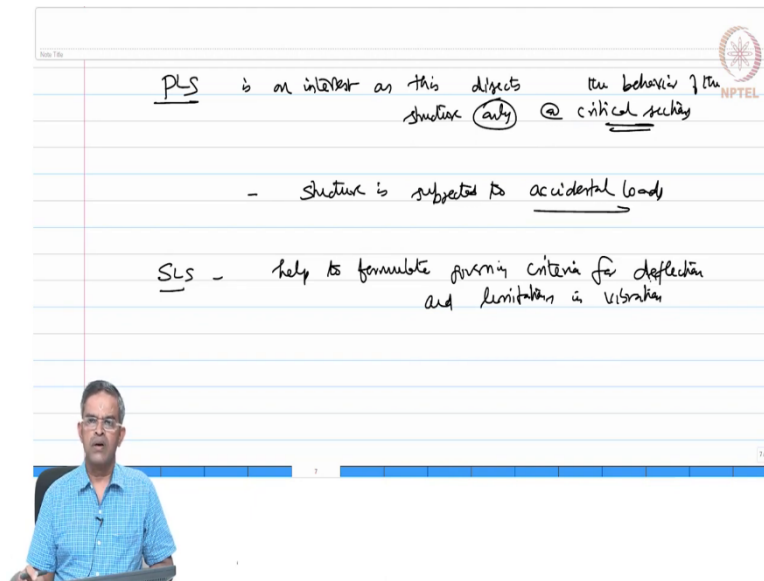 Note Title
NPTEL
PLS is on interest as this directs the behavior of the
structure only @ critical sections
- structure is subjected to accidental loads
SLS - help to formulate governing criteria for deflection
and limitations in vibration
7